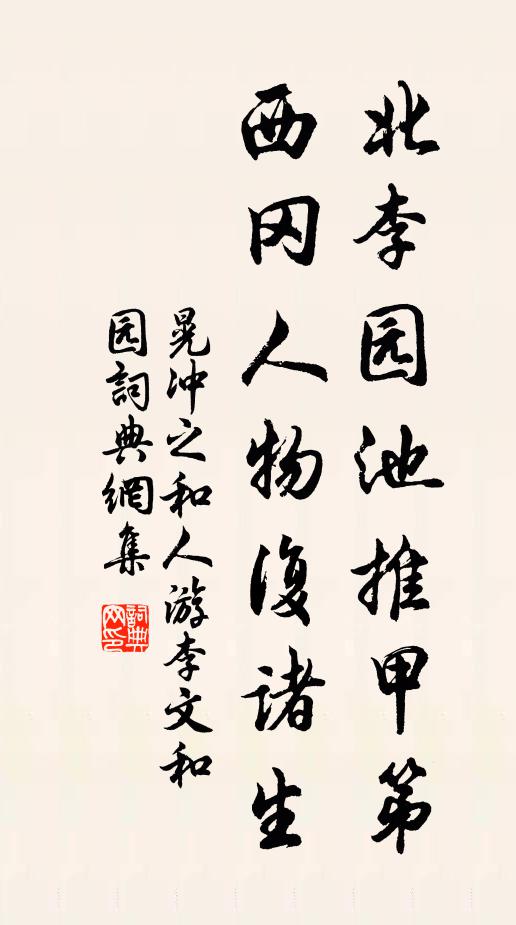 北李园池推甲第
西冈人物復诸生
晁冲之和人游李文和
园詞典網集
詞典
网印